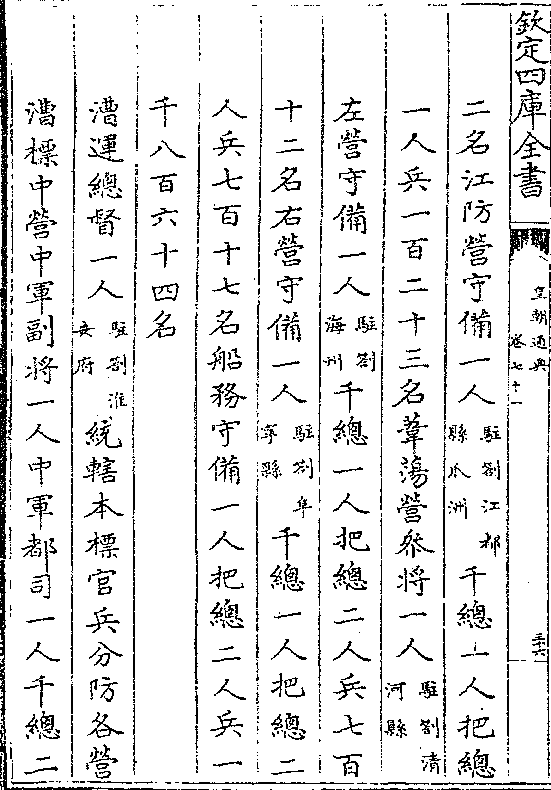 欽定四庫全書
皇朝通典
卷七十一
三十六
二名江防營守備一人駐劄江都縣瓜洲千總一人把總
一人兵一百二十三名葦蕩營叅將一人駐劄清河縣
左營守備一人駐劄海州千總一人把總二人兵七百
十二名右營守備一人駐劄阜寧縣千總一人把總二
人兵七百十七名船務守備一人把總二人兵一
千八百六十四名
漕運總督一人駐劄淮安府統轄本標官兵分防各營
漕標中營中軍副將一人中軍都司一人千總二